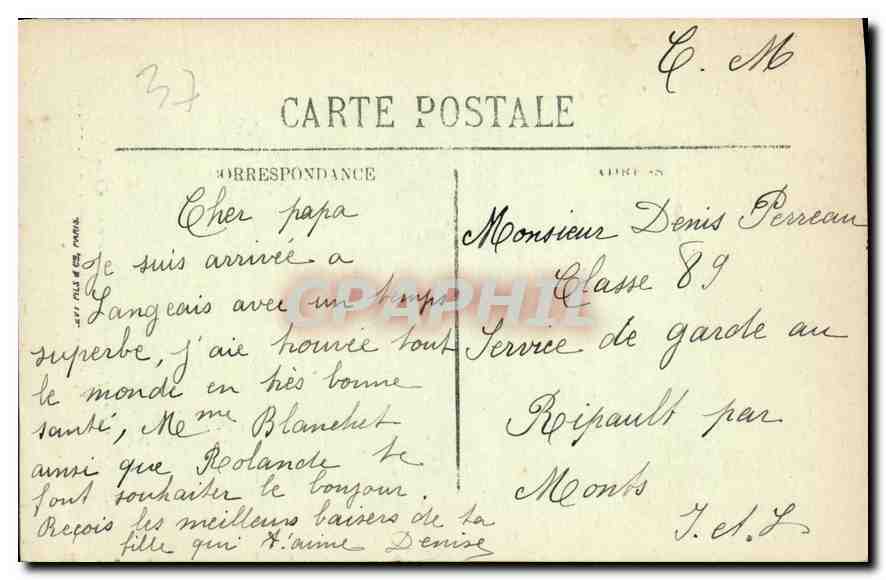 37
C. M
CARTE POSTALE
CORRESPONDANCE
ADRESSE
LEVY FILS & Cie, PARIS.
Cher papa
Je suis arrivée a
Langeais avec un temps
superbe, j'aie trouvée tout
le monde en très bonne
santé, Mme Blanchet
ainsi que Rolande te
font souhaiter le bonjour.
Reçois les meilleurs baisers de ta
fille qui t'aime Denise
Monsieur Denis Perreau
Classe 89
Service de garde au
Ripault par
Monts
I. et. L
GRAPHIL